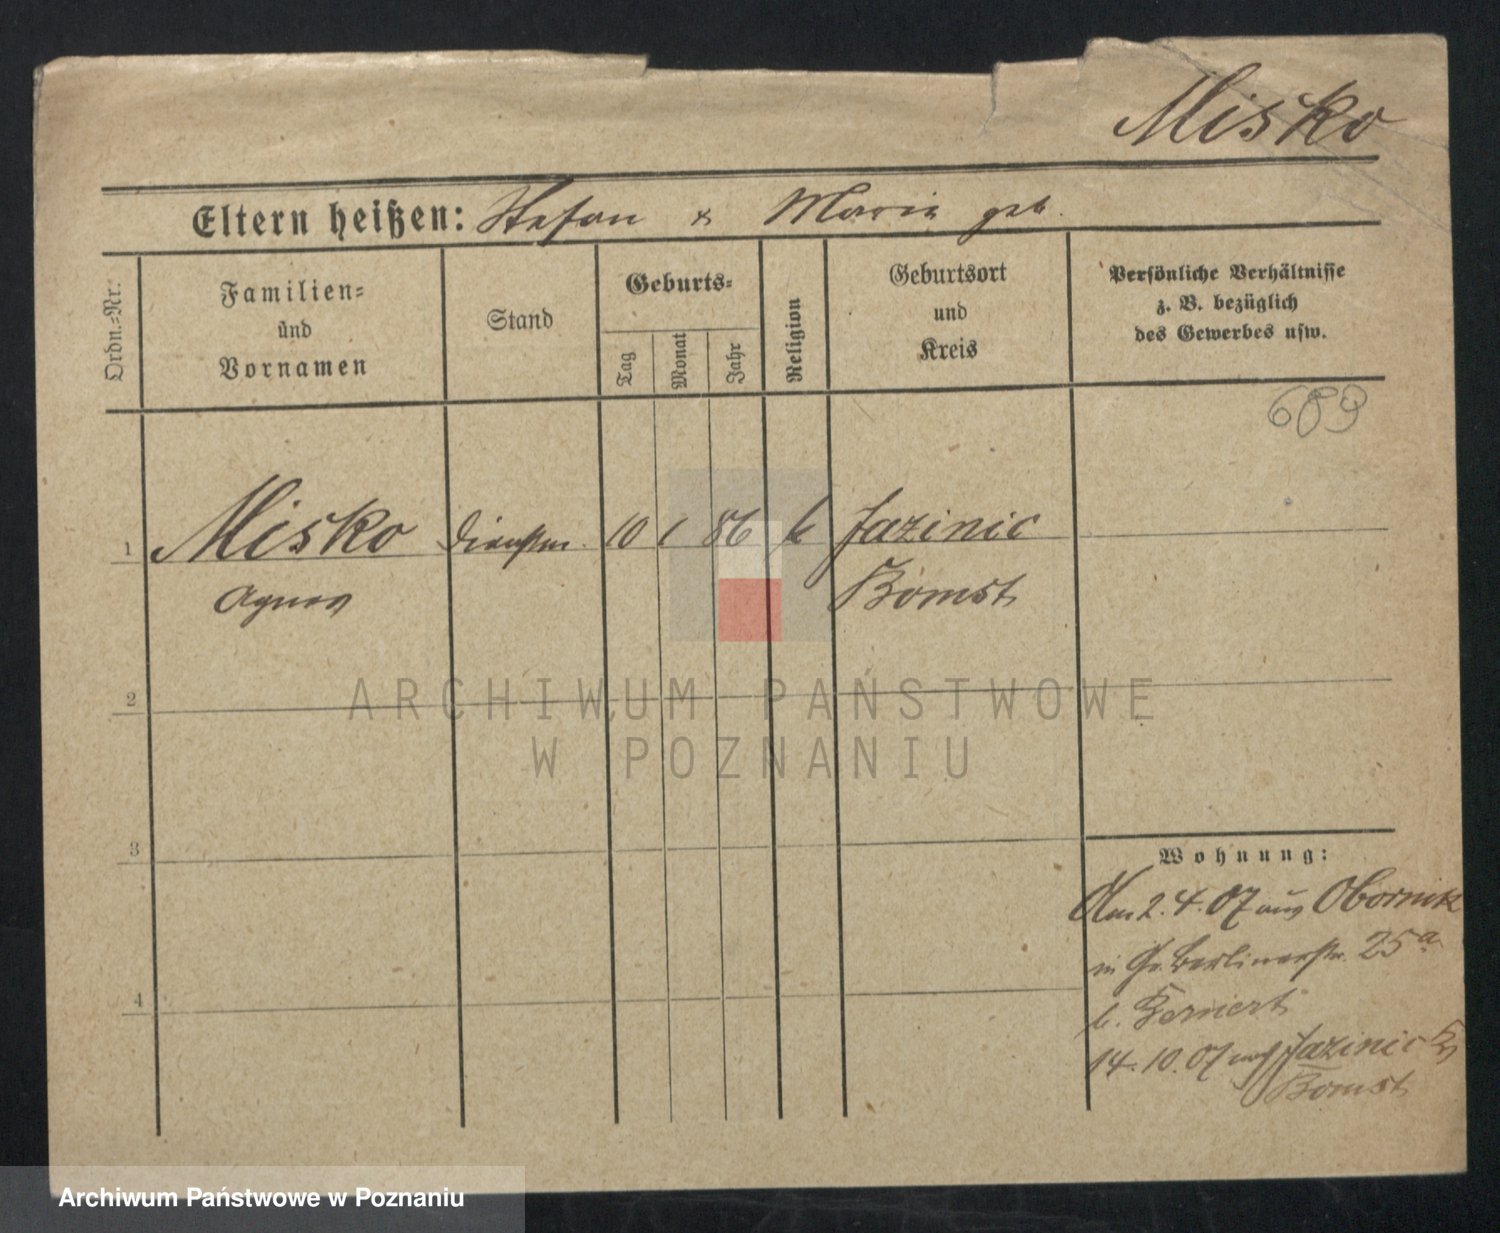 Misko
Eltern heißen: Stefan & Maria geb.
Ordn.-Nr.
Familien-
und
Vornamen
Stand
Geburts-
Tag
Monat
Jahr
Religion
Geburtsort
und
Kreis
Persönliche Verhältnisse
z. B. bezüglich
des Gewerbes usw.
689
1 Misko Dienstm. 10 1 86 k Jazinic
Agnes Bomst
2
3
4
Wohnung:
Am 2.4.07 aus Obornik
in Gr. Berlinerstr. 25a
b.
14.10.07 nach Jazinic Kr
Bomst
ARCHIWUM PAŃSTWOWE
W POZNANIU
Archiwum Państwowe w Poznaniu